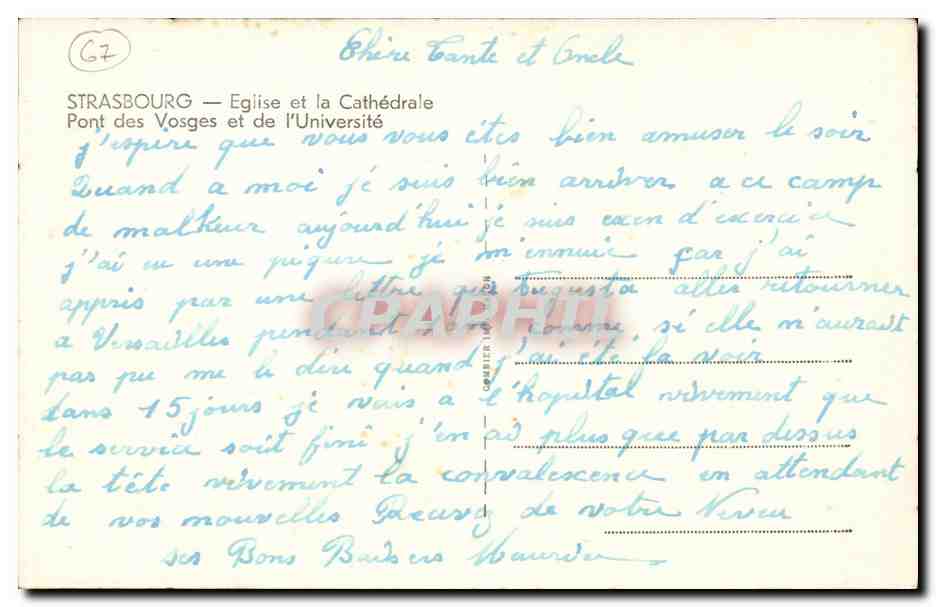 67
Chère Tante et Oncle
STRASBOURG — Eglise et la Cathédrale
Pont des Vosges et de l'Université
j'espère que vous vous étes bien amuser le soir
Quand a moi je suis bien arriver a ce camp
de malheur aujourd'hui je suis exen d'exercice
j'ai eu une piqure je m'ennuie car j'ai
appris par une lettre que Augusta aller retourner
a Versailles pendant comme si elle n'aurait
pas pu me le dire quand j'ai été la voir
dans 15 jours je vais a l'hopital vivement que
le service soit fini j'en ai plus que par dessus
la téte vivement la convalescence en attendant
de vos nouvelles Recevez de votre Neveu
ses Bons Baisers Maurice
CPARHII
COMBIER IMP